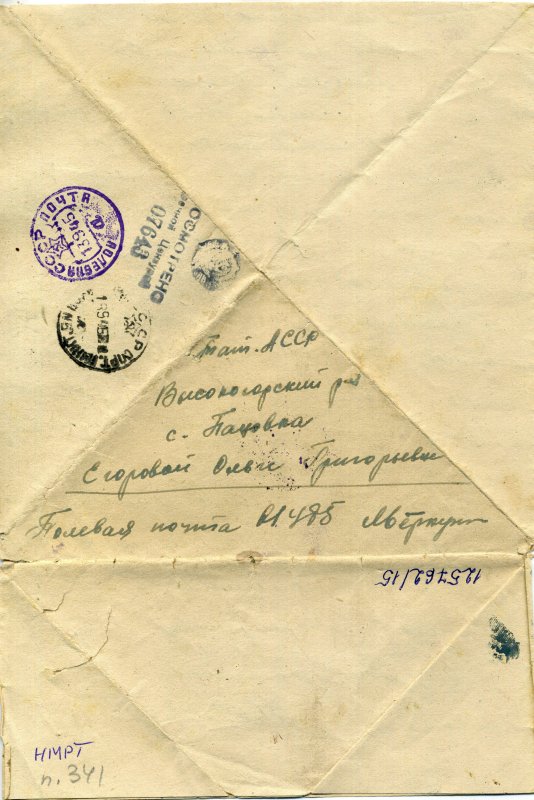 ПОЧТА
ПОЛЕВАЯ
СССР
13 9 45
ПРОСМОТРЕНО
Военной Цензурой
07643
СССР СОРТ.
Тат. АССР
Высокогорский р-н
с. Пановка
Егоровой Ольги Григорьевне
Полевая почта 01485
125762/15
НМРТ
п. 341